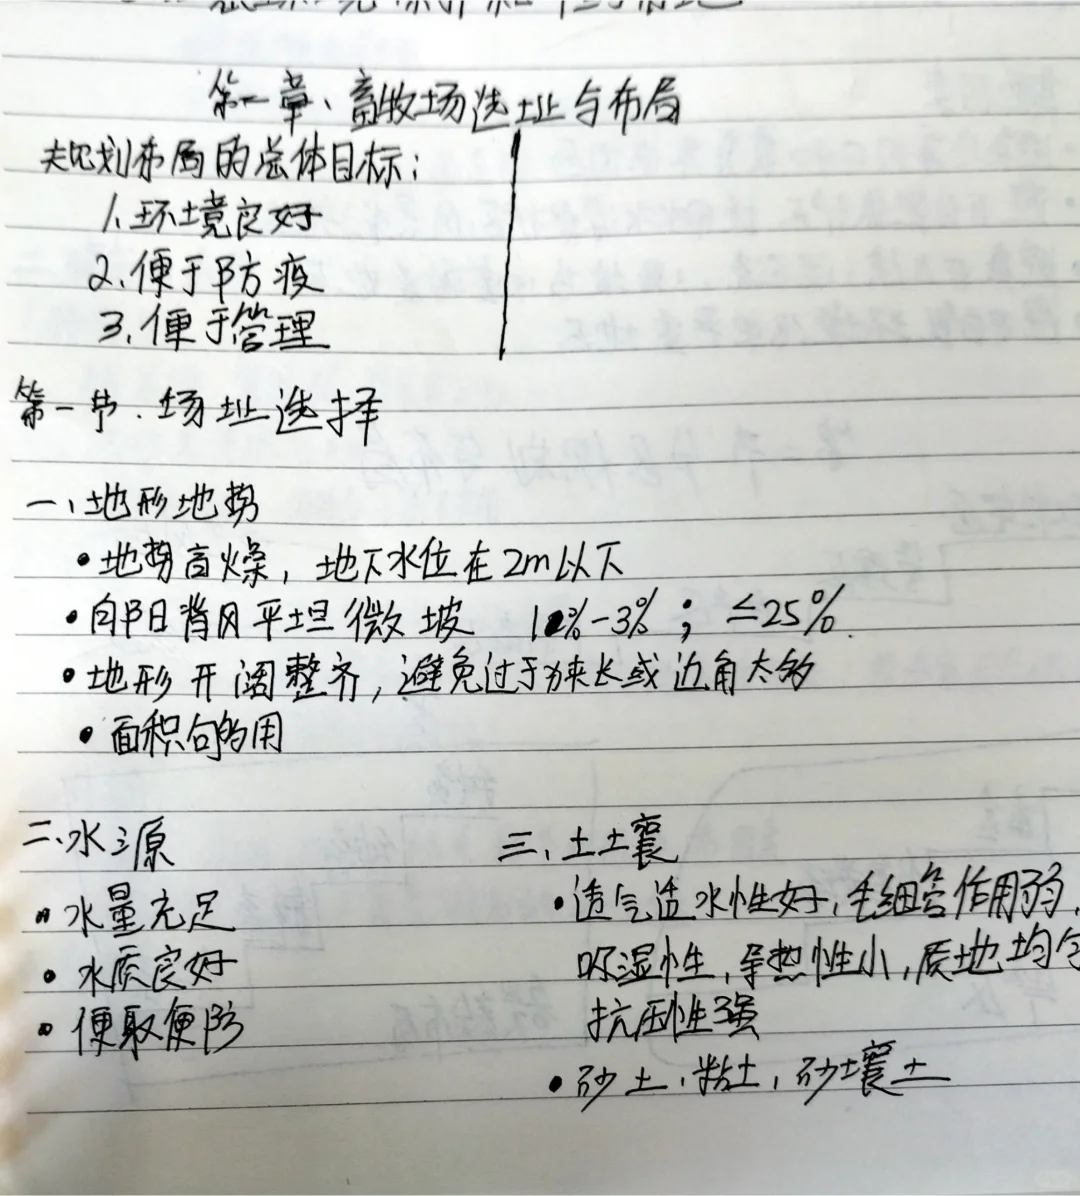 第一章、畜牧场选址与布局
规划布局的总体目标：
1.环境良好
2.便于防疫
3.便于管理
第一节.场址选择
一、地形地势
•地势高燥，地下水位在2m以下
•向阳背风平坦微坡 1%-3%；≤25%.
•地形开阔整齐，避免过于狭长或边角太多
•面积勾够用
二.水源
•水量充足
•水质良好
•便取便防
三、土壤
•透气透水性好，毛细管作用弱，
吸湿性，导热性小，质地均匀
抗压性强
•砂土.粘土，砂壤土